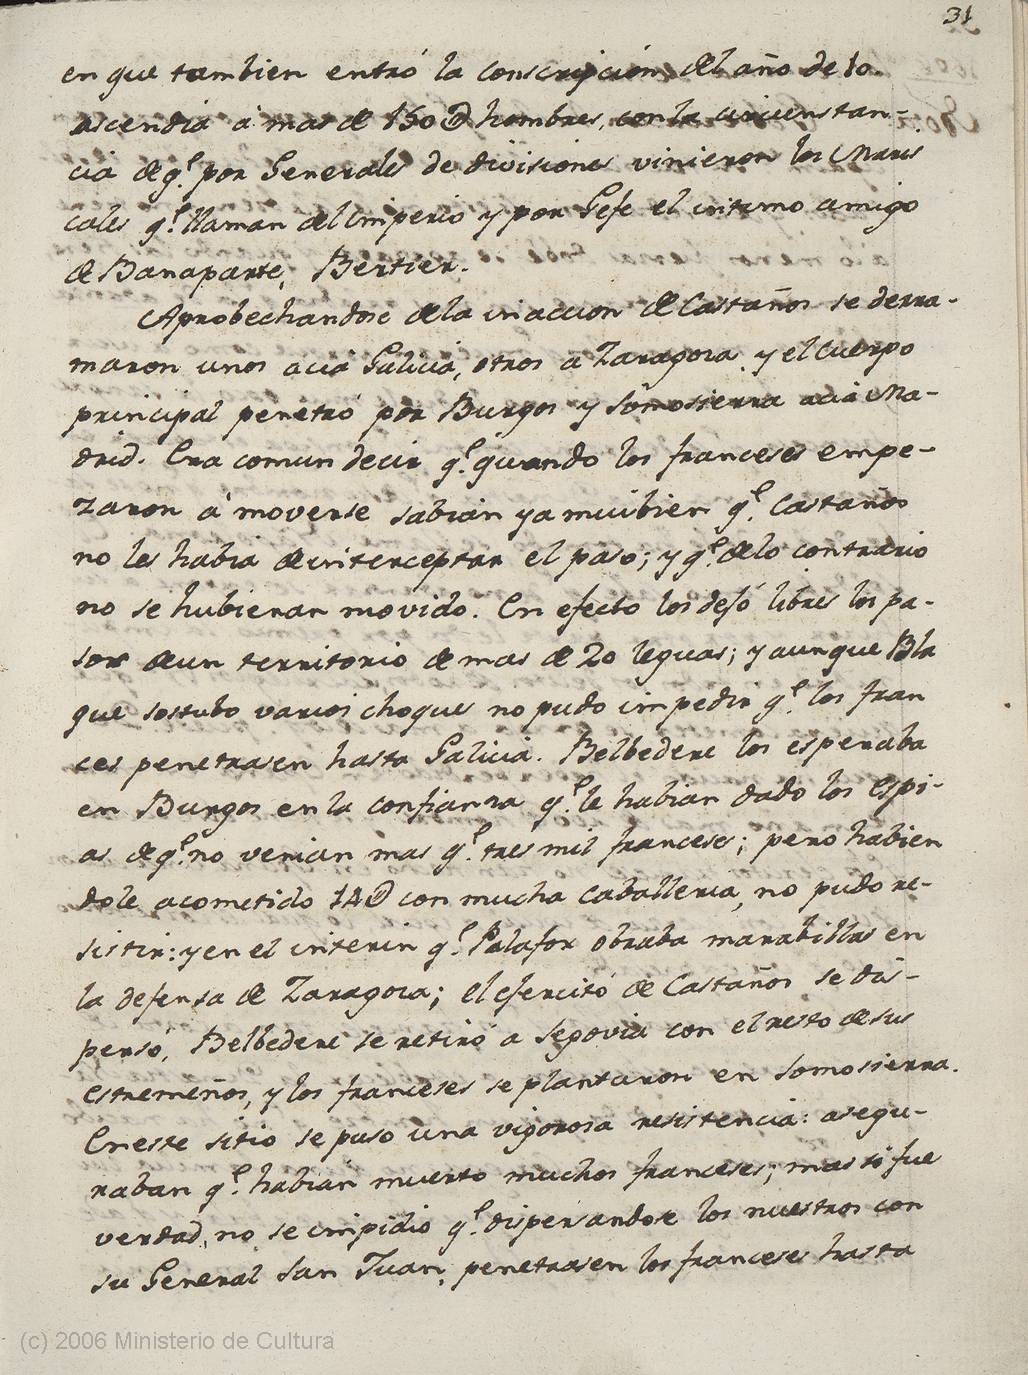 31
en que tambien entró la conscripción del año de 10.
ascendia a mas de 150@ hombres, con la circunstan-
cia de q.e por Generales de divisiones vinieron los Maris
cales q.e llaman del Imperio y por Gefe el intimo amigo
de Banaparte, Bertier.
Aprobechandose de la inaccion de Castaños se derra-
maron unos acia Galicia, otros a Zaragoza, y el cuerpo
principal penetró por Burgos y Somosierra acia Ma-
drid. Era comun decir q.e quando los franceses empe-
zaron á moverse sabian ya mui bien q.e Castaños
no les habia de interceptar el paso; y q.e de lo contrario
no se hubieran movido. En efecto los dejó libres los pa-
sos de un territorio de mas de 20 leguas; y aunque Bla
que sostubo varios choques no pudo impedir q.e los fran
ces penetrasen hasta Galicia. Belbedere los esperaba
en Burgos en la confianza q.e le habian dado los espi-
as de q.e no venian mas q.e tres mil franceses; pero habien
dole acometido 14@ con mucha caballeria, no pudo re-
sistir: y en el interin q.e Palafox obraba marabillas en
la defensa de Zaragoza; el ejercitó de Castaños se dis-
persó, Belbedere se retiró a Segovia con el resto de sus
estremeños, y los franceses se plantaron en Somosierra.
En este sitio se puso una vigorosa resistencia: asegu-
raban q.e habian muerto muchos franceses; mas si fue
verdad, no se impidio q.e dispersandose los nuestros con
su General San Juan, penetrasen los franceses hasta
(c) 2006 Ministerio de Cultura